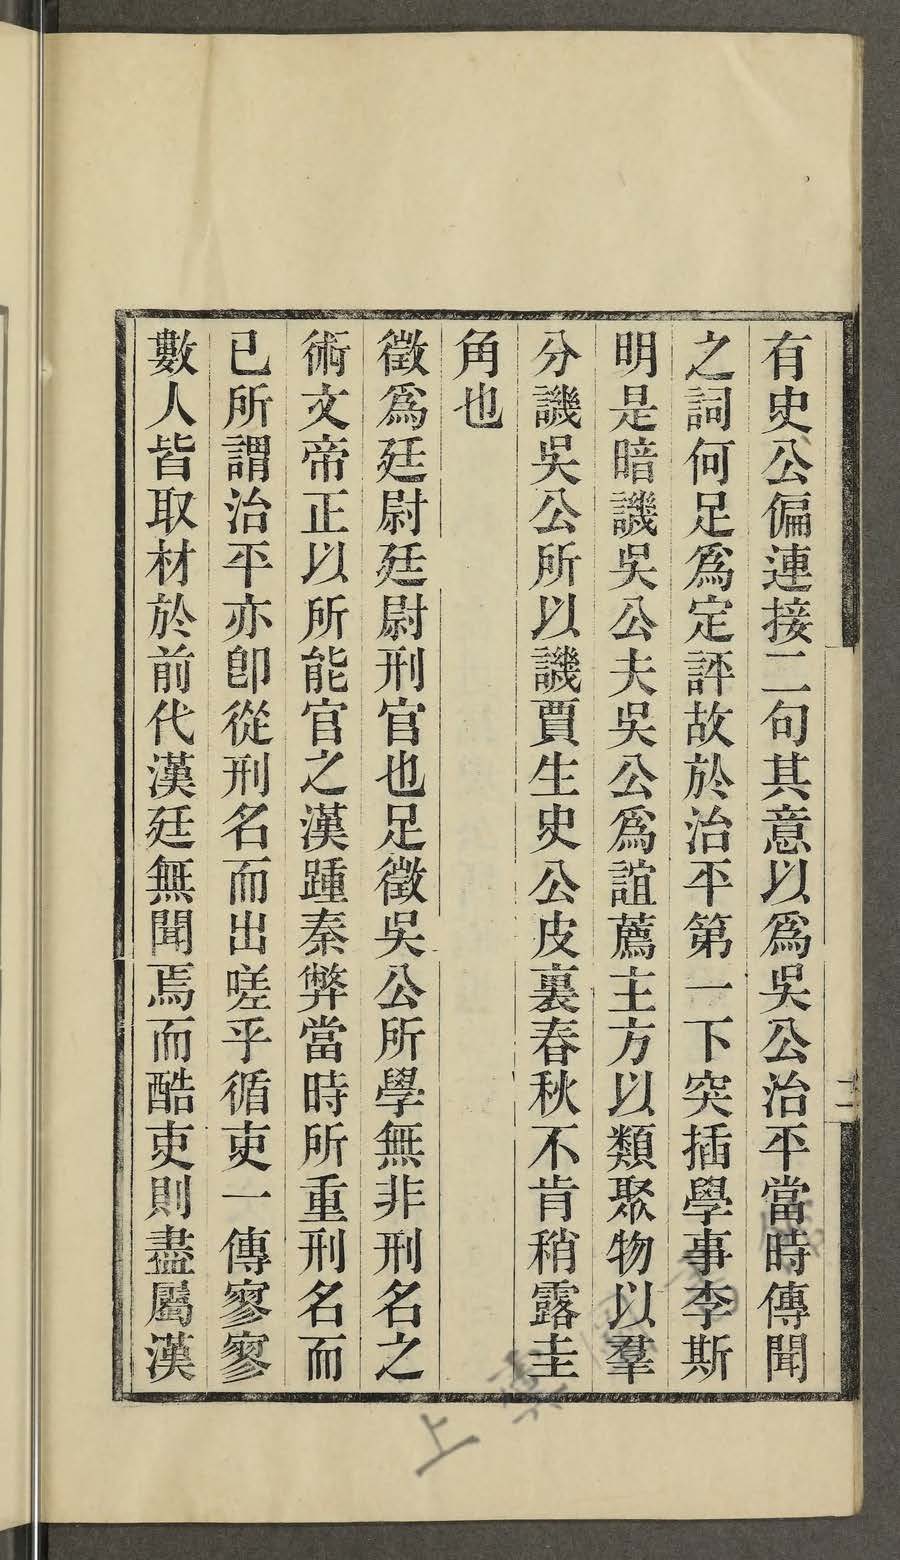 有史公偏連接二句其意以爲吳公治平當時傳聞
之詞何足爲定評故於治平第一下突插學事李斯
明是暗譏吳公夫吳公爲誼薦主方以類聚物以羣
分譏吳公所以譏賈生史公皮裏春秋不肯稍露圭
角也
徵爲廷尉廷尉刑官也足徵吳公所學無非刑名之
術文帝正以所能官之漢踵秦弊當時所重刑名而
已所謂治平亦卽從刑名而出嗟乎循吏一傳寥寥
數人皆取材於前代漢廷無聞焉而酷吏則盡屬漢
二